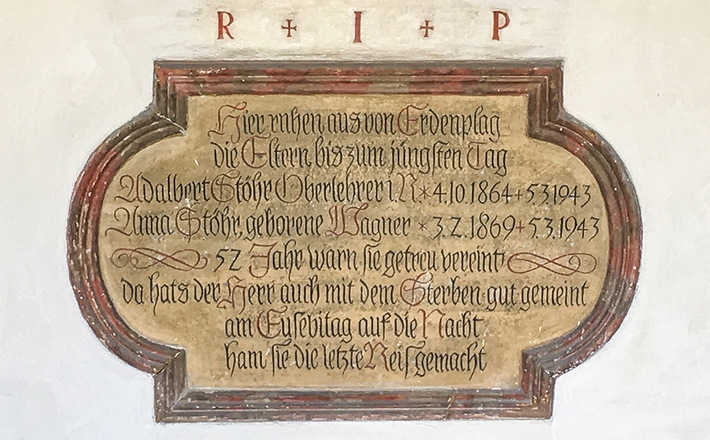 R + I + P
Hier ruhen aus von Erdenplag
die Eltern, bis zum jüngsten Tag
Adalbert Stöhr Oberlehrer i. R * 4.10.1864 + 5 3 1943
Anna Stöhr, geborene Wagner * 3. 2. 1869 + 5. 3. 1943
52 Jahr warn sie getreu vereint
da hats der Herr auch mit dem Sterben gut gemeint
am Eusebitag auf die Nacht
ham sie die letzte Reis gemacht